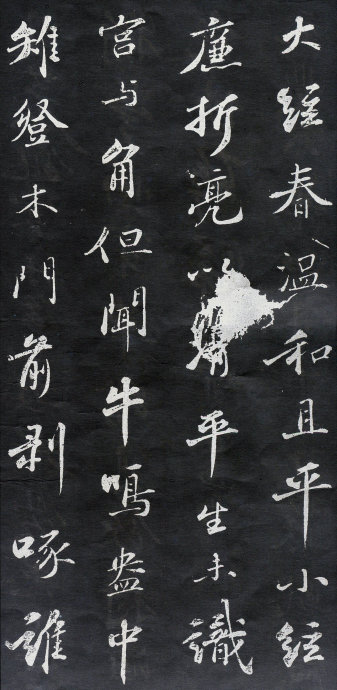 大絃春溫和且平小絃
廉折亮以清平生未識
宮与角但聞牛鳴盎中
雉登木門前剥啄誰